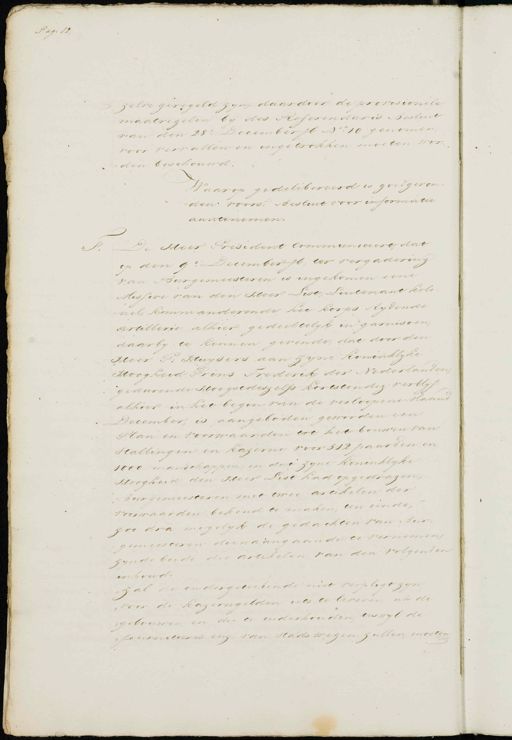 Pag. 12.
zelve geregeld zyn, daardoor de provisionele
maatregelen by des Referendaris Besluit
van den 28 December jl. No. 10 genomen
voor vervallen en ingetrokken moeten wor-
den beschouwd.
Waarop gedelibereerd is goedgevon-
den voors. Besluit voor informatie
aantenemen.
F. De Heer President communiceert, dat
op den 9 December jl. ter vergadering
van Burgemeesteren is ingekomen eene
Missive van den Heer List, Lieutenant Kolo-
nel Kommanderende het korps rydende
artillerie alhier gedeeltelyk in garnisoen,
daarby te kennen gevende, dat door den
Heer P. Huysers aan Zyne Koninklyke
Hoogheid Prins Frederik der Nederlanden,
gedurende Hoogstdeszelfs kortstondig verblyf
alhier in het begin van de verlopene Maand
December, is aangeboden geworden een
Plan en Voorwaarden tot het bouwen van
Stallingen en kazerne voor 512 paarden en
1000 manschappen en dat Zyne Koninklyke
Hoogheid den Heer List had opgedragen,
Burgemeesteren met twee artikelen der
voorwaarden bekend te maken, ten einde,
zoo dra mogelyk de gedachten van Bur-
gemeesteren dienaangaande te vernemen
zynde beide die artikelen van den volgenden
inhoud.
Zal de ondergeteekende niet verpligt zyn
voor de kazerngelden iets te leveren aan de
gebouwen en die te onderhouden, terwyl de
fournitures enz. van Stadswegen zullen moeten